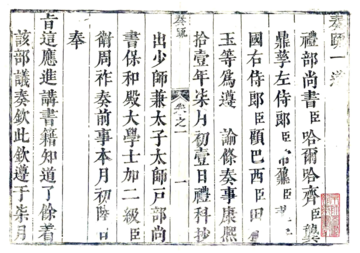 奏疏一道
禮部尚書臣哈爾哈齊臣龔
鼎孳左侍郎臣
國右侍郎臣額巴西臣田
玉等爲遵 諭條奏事康熙
拾壹年柒月初壹日禮科抄
奏疏 卷之一 一
出少師兼太子太師戶部尚
書保和殿大學士加二級臣
衛周祚奏前事本月初陸日
奉
旨這應進講書籍知道了餘着
該部議奏欽此欽遵于柒月